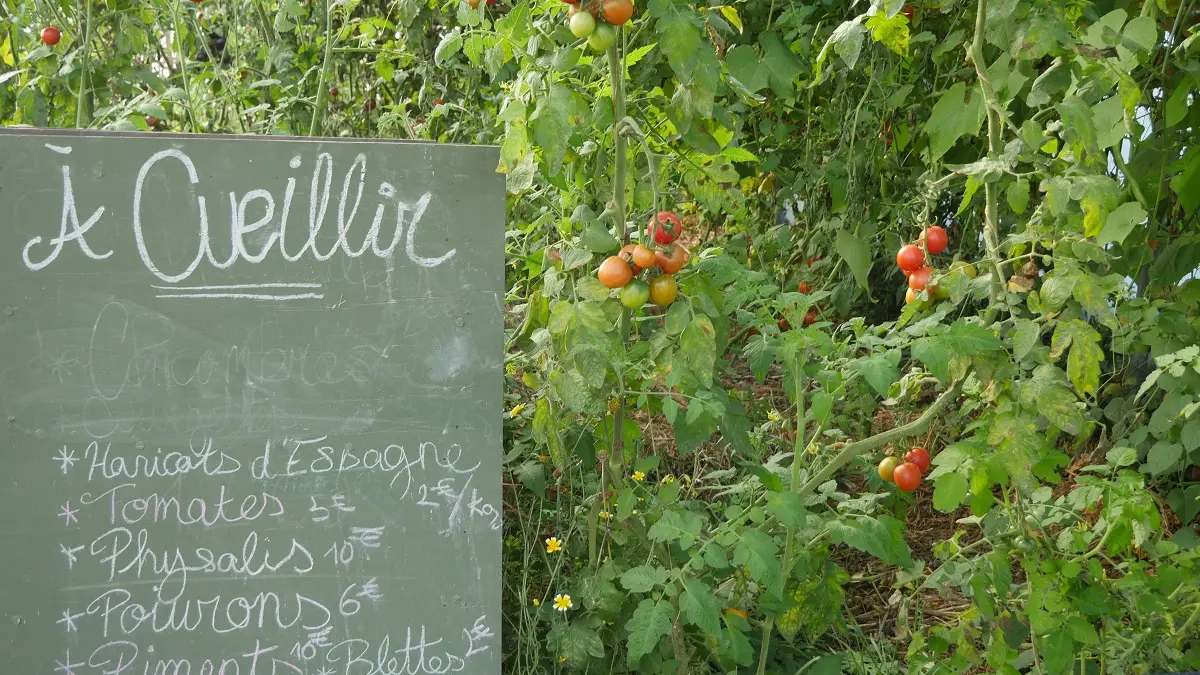 À Cueillir
* Concombres
* Haricots d'Espagne
2€/kg
* Tomates 5€
* Physalis 10€
* Poivrons 6€
* Piments 10€ * Blettes 2€